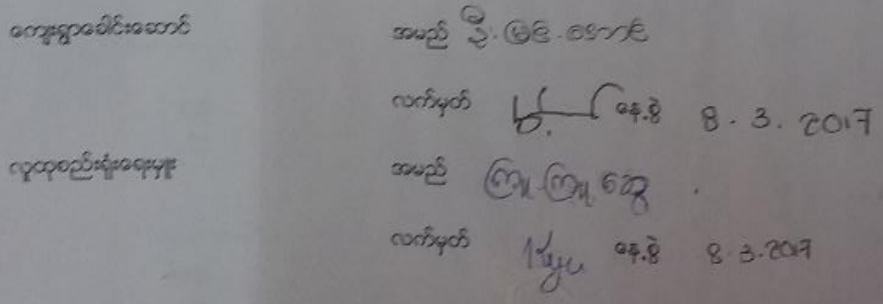 ကျေးရွာခေါင်းဆောင် အမည် ဦးမြင့်အောင်
လက်မှတ် နေ့စွဲ 8.3.2017
လူထုစည်းရုံးရေးမှူး အမည် ကြူကြူဆွေ
လက်မှတ် Kyu နေ့စွဲ 8.3.2017